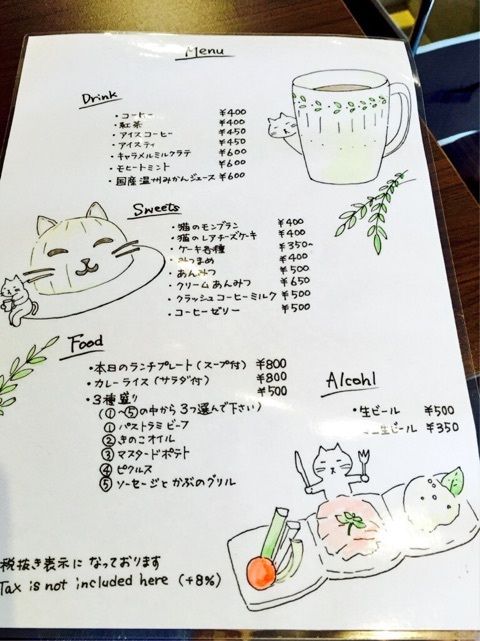 Menu
Drink
・コーヒー ¥400
・紅茶 ¥400
・アイスコーヒー ¥450
・アイスティ ¥450
・キャラメルミルクラテ ¥600
・モヒートミント ¥600
・国産温州みかんジュース ¥600
Sweets
・猫のモンブラン ¥400
・猫のレアチーズケーキ ¥400
・ケーキ各種 ¥350〜
・みつまめ ¥400
・あんみつ ¥500
・クリームあんみつ ¥650
・クラッシュコーヒーミルク ¥500
・コーヒーゼリー ¥500
Food
・本日のランチプレート(スープ付) ¥800
・カレーライス(サラダ付) ¥800
・3種盛り ¥500
(①〜⑤の中から3つ選んで下さい)
① パストラミビーフ
② きのこオイル
③ マスタードポテト
④ ピクルス
⑤ ソーセージとかぶのグリル
Alcohl
・生ビール ¥500
生ビール ¥350
税抜き表示になっております
Tax is not included here (+8%)